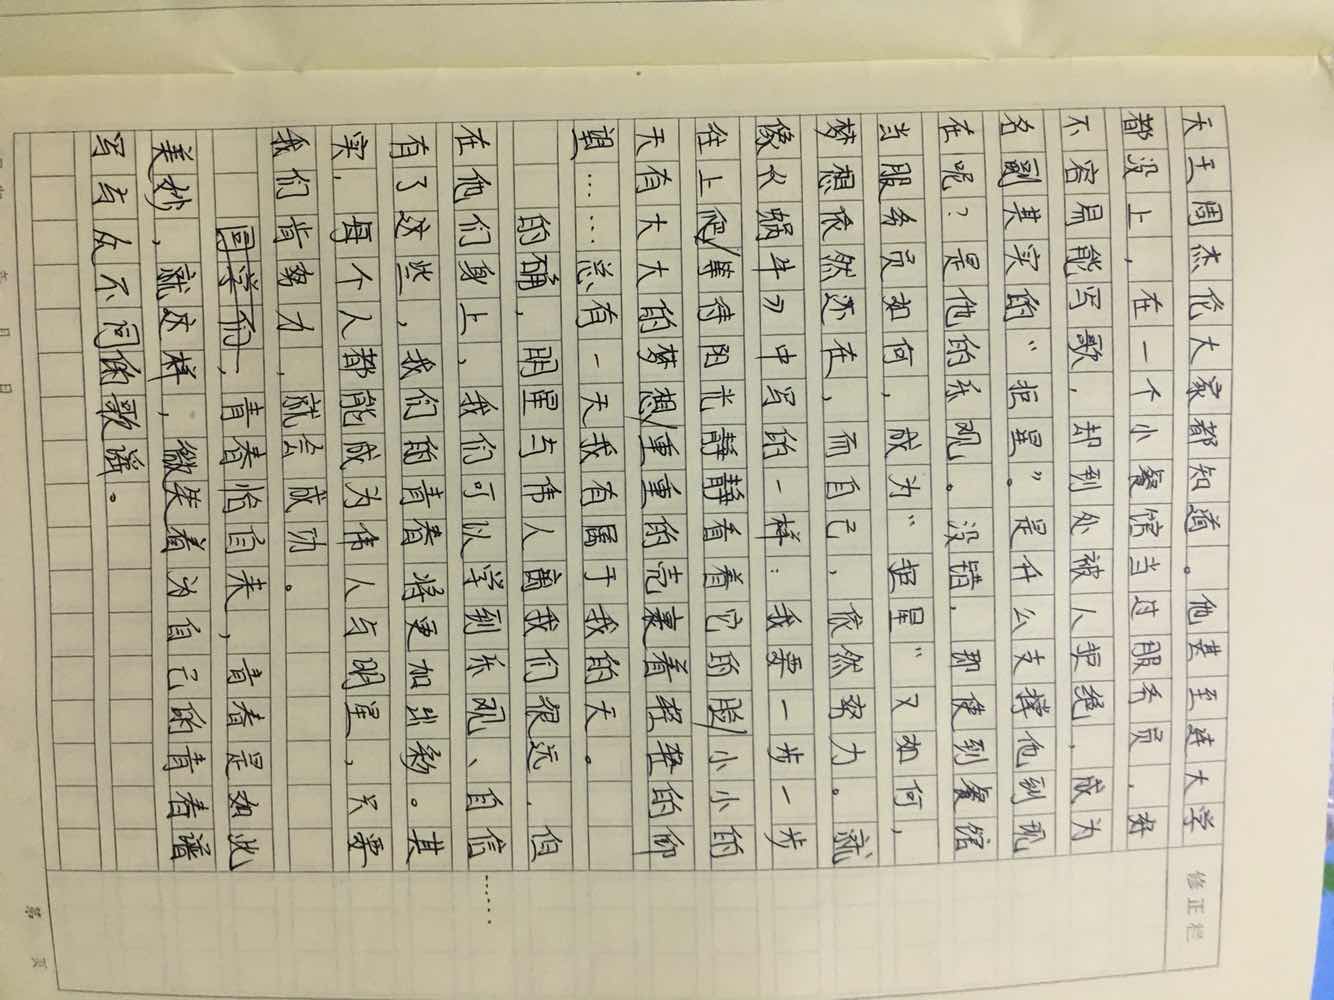 天王周杰伦大家都知道。他甚至连大学
都没上，在一个小餐馆当过服务员，好
不容易能写歌，却到处被人拒绝，成为
名副其实的“拒星”。是什么支撑他到现
在呢？是他的乐观。没错，即使到餐馆
当服务员如何，成为“拒星”又如何，
梦想依然还在，而自己，依然努力。就
像《蜗牛》中写的一样：我要一步一步
往上爬/等待阳光静静看着它的脸/小小的
天有大大的梦想/重重的壳裹着轻轻的仰
望……总有一天我有属于我的天。
的确，明星与伟人离我们很远，但
在他们身上，我们可以学到乐观、自信……
有了这些，我们的青春将更加出彩。其
实，每个人都能成为伟人与明星，只要
我们肯努力，就会成功。
同学们，青春恰自来，青春是如此
美妙，就这样，微笑着为自己的青春谱
写与众不同的歌谣。
修正栏
年 月 日
第 页